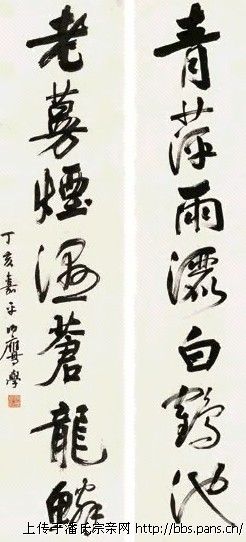 青萍雨灑白鶴池
老蔓煙濕蒼龍鱗
丁亥嘉平伯鷹學
上传于潘氏宗亲网 http://bbs.pans.ch/